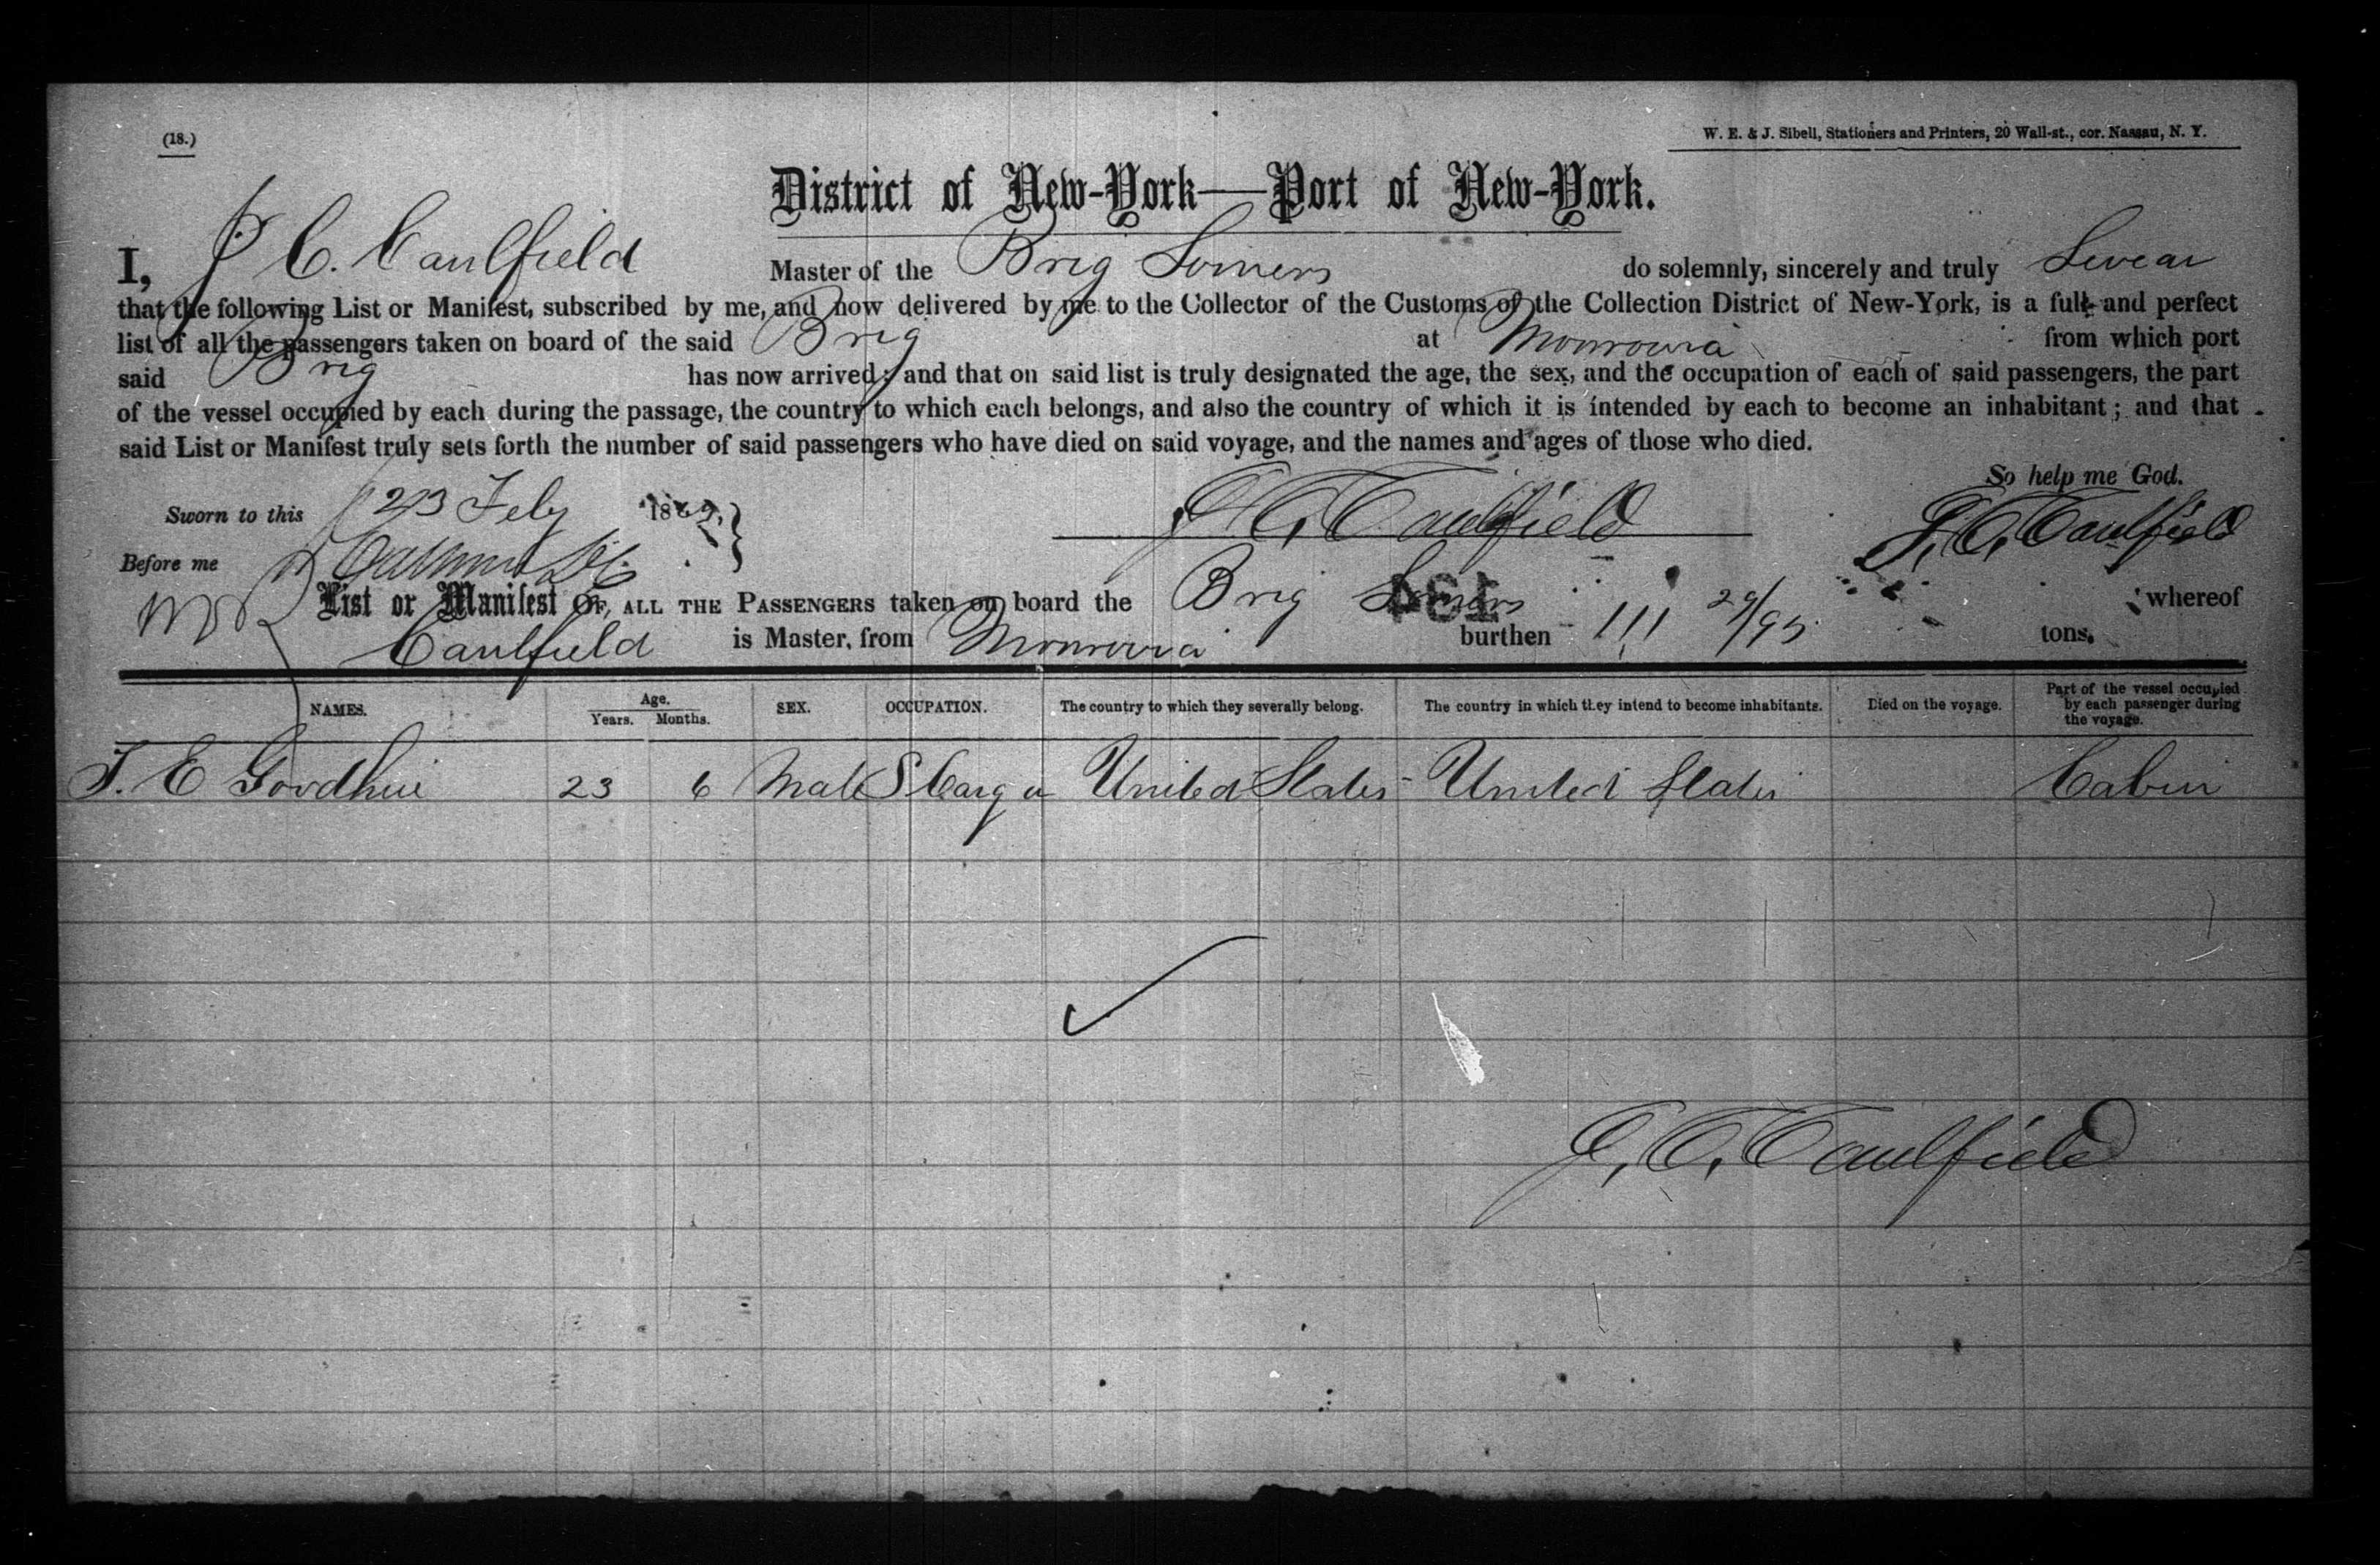 (18.)
W. E. & J. Sibell, Stationers and Printers, 20 Wall-st., cor. Nassau, N. Y.
District of New-York—Port of New-York.
I, J C. Caulfield Master of the Brig Somers do solemnly, sincerely and truly Swear
that the following List or Manifest, subscribed by me, and now delivered by me to the Collector of the Customs of the Collection District of New-York, is a full and perfect
list of all the passengers taken on board of the said Brig at Monrovia from which port
said Brig has now arrived; and that on said list is truly designated the age, the sex, and the occupation of each of said passengers, the part
of the vessel occupied by each during the passage, the country to which each belongs, and also the country of which it is intended by each to become an inhabitant; and that
said List or Manifest truly sets forth the number of said passengers who have died on said voyage, and the names and ages of those who died.
So help me God.
Sworn to this 23 Feby 1869. J. C. Caulfield J. C. Caulfield
Before me
List or Manifest OF ALL THE PASSENGERS taken on board the Brig Somers whereof
134
Caulfield is Master, from Monrovia burthen 111 29/95 tons.
NAMES. Age. Years. Months. SEX. OCCUPATION. The country to which they severally belong. The country in which they intend to become inhabitants. Died on the voyage. Part of the vessel occupied by each passenger during the voyage.
T. E Goodhue 23 6 Male S Cargo United States United States Cabin
J. C. Caulfield